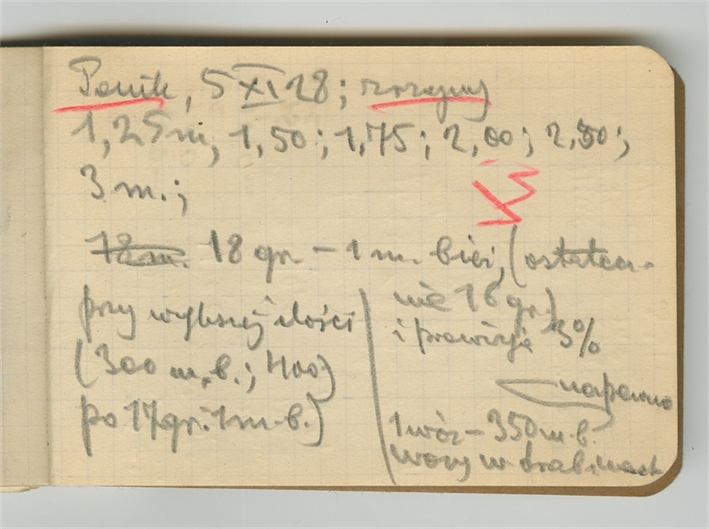 Ponik, 5 XI 28; rozejmy
1,25 m, 1,50; 1,75; 2,00; 2,50;
3 m.;
18 gr – 1 m. bież, (ostatecz-
nie 16 gr.)
i prowizja 5%
napewno
1 wóz – 350 m.b.
wozy w drabinach
przy większej ilości
(300 m.b.; 400)
po 17 gr. 1 m.b.)